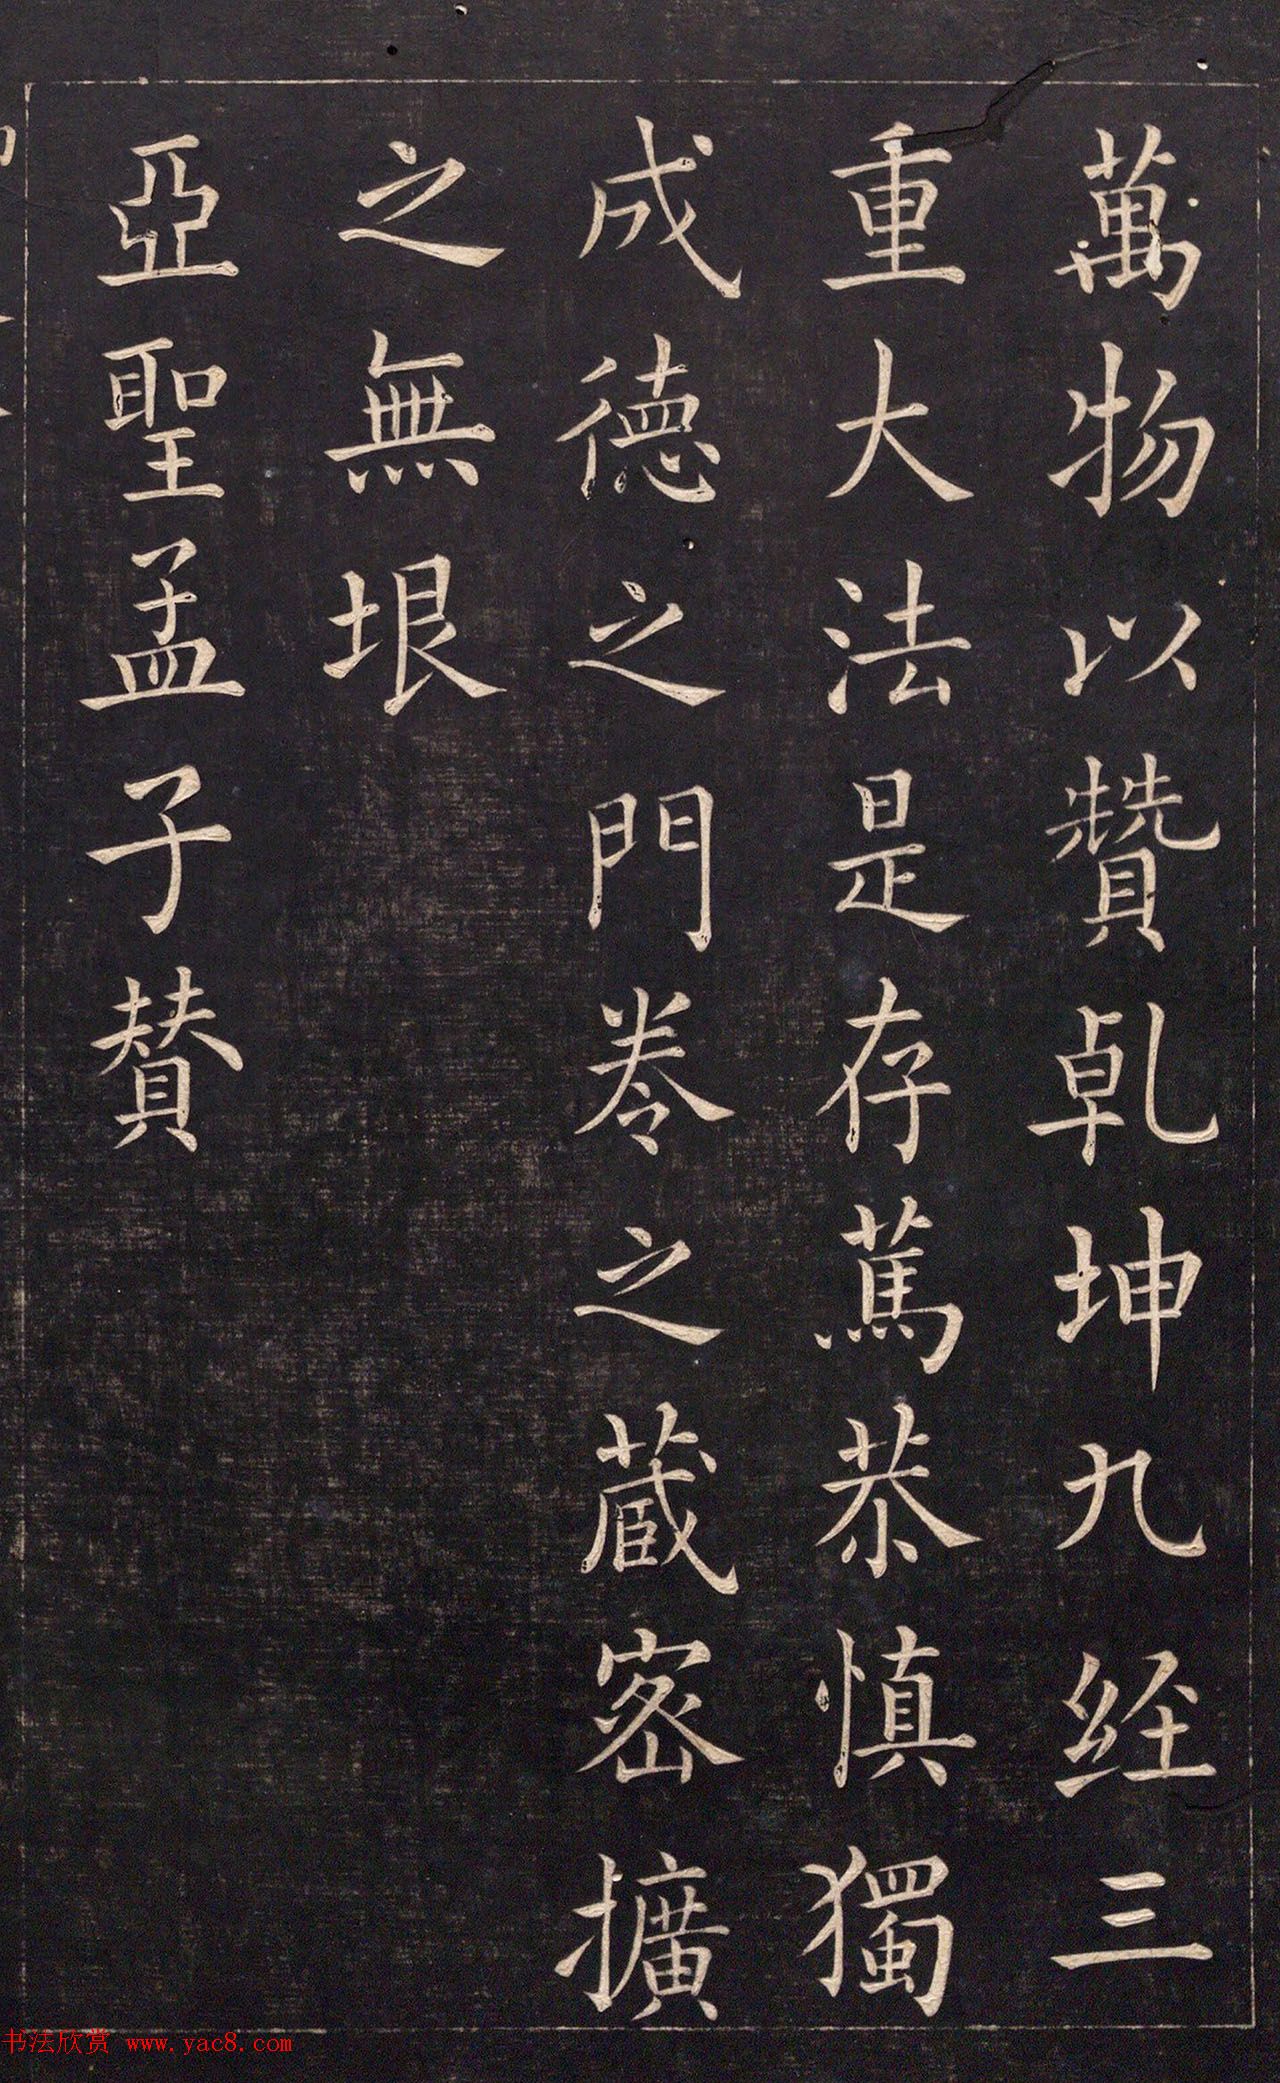 萬物以贊乹坤九經三
重大法是存篤恭慎獨
成德之門卷之藏密擴
之無垠
亞聖孟子賛
书法欣赏 www.yac8.com